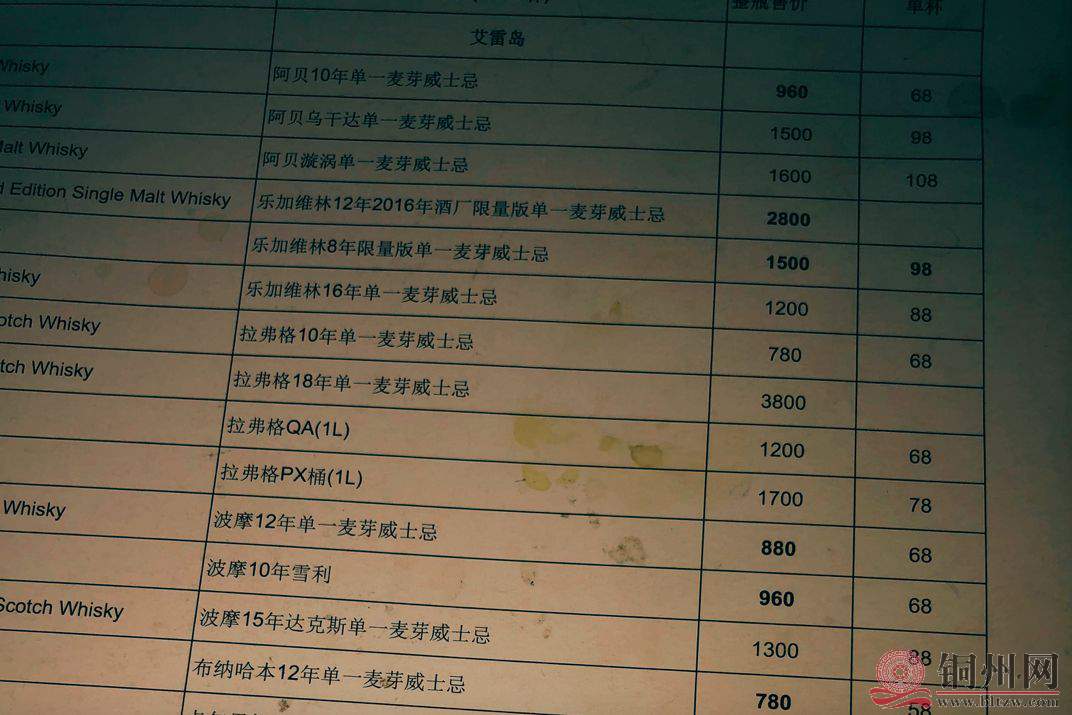 整瓶售价 单杯
艾雷岛
Whisky 阿贝10年单一麦芽威士忌 960 68
Whisky 阿贝乌干达单一麦芽威士忌 1500 98
Malt Whisky 阿贝漩涡单一麦芽威士忌 1600 108
d Edition Single Malt Whisky 乐加维林12年2016年酒厂限量版单一麦芽威士忌 2800
乐加维林8年限量版单一麦芽威士忌 1500 98
hisky 乐加维林16年单一麦芽威士忌 1200 88
otch Whisky 拉弗格10年单一麦芽威士忌 780 68
tch Whisky 拉弗格18年单一麦芽威士忌 3800
拉弗格QA(1L) 1200 68
拉弗格PX桶(1L) 1700 78
Whisky 波摩12年单一麦芽威士忌 880 68
波摩10年雪利 960 68
Scotch Whisky 波摩15年达克斯单一麦芽威士忌 1300 88
布纳哈本12年单一麦芽威士忌 780 58
铜州网
www.bltzw.com